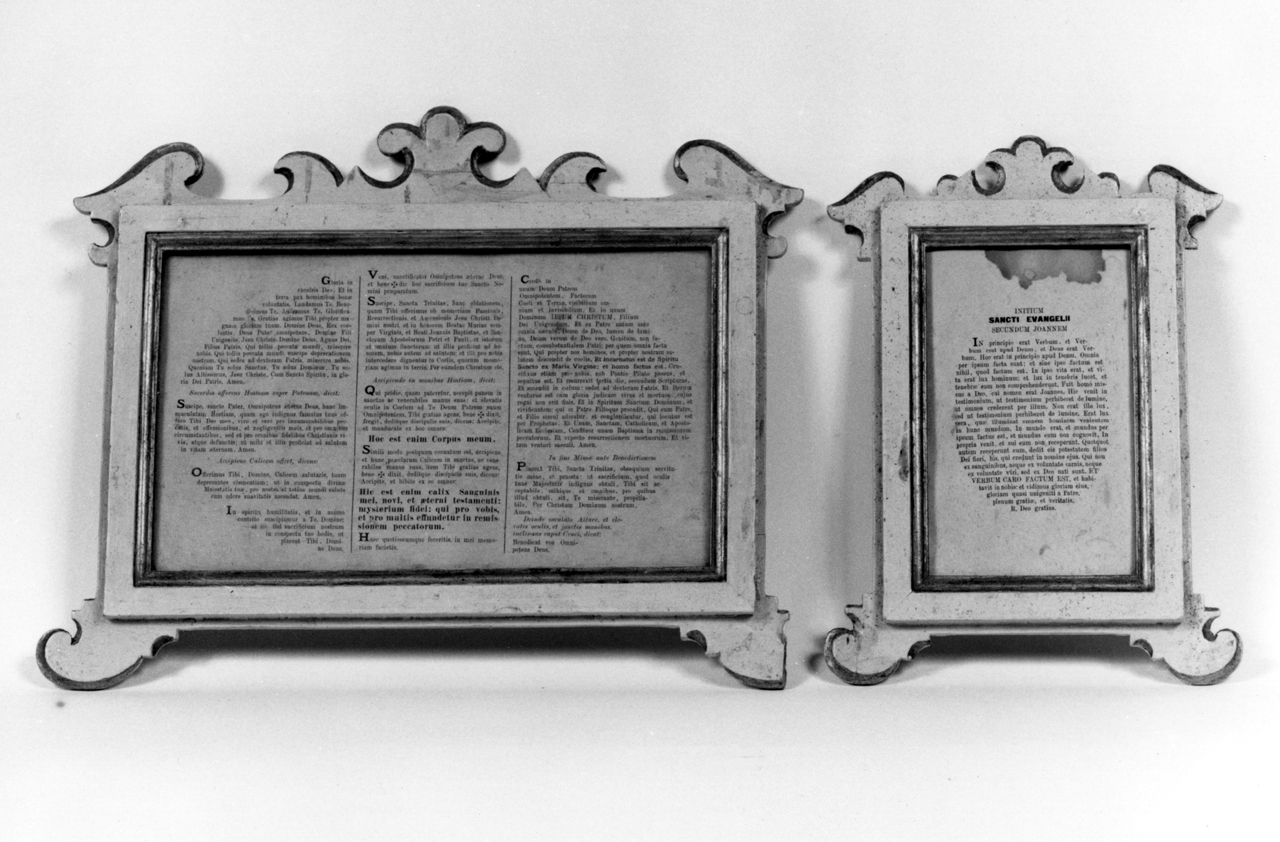 Gloria in
excelsis Deo, Et in
terra pax hominibus bonæ
voluntatis. Laudamus Te. Bene-
dicimus Te. Adoramus Te. Glorifica-
mus Te. Gratias agimus Tibi propter ma-
gnam gloriam tuam. Domine Deus, Rex cœ-
lestis, Deus Pater omnipotens. Domine Fili
Unigenite, Jesu Christe. Domine Deus, Agnus Dei,
Filius Patris. Qui tollis peccata mundi, miserere
nobis. Qui tollis peccata mundi, suscipe deprecationem
nostram. Qui sedes ad dexteram Patris, miserere nobis.
Quoniam Tu solus Sanctus, Tu solus Dominus, Tu so-
lus Altissimus, Jesu Christe, Cum Sancto Spiritu, in glo-
ria Dei Patris. Amen.
Sacerdos offerens Hostiam super Patenam, dicit:
Suscipe, sancte Pater, Omnipotens æterne Deus, hanc im-
maculatam Hostiam, quam ego indignus famulus tuus of-
fero Tibi Deo meo, vivo et vero pro innumerabilibus pec-
catis, et offensionibus, et negligentiis meis, et pro omnibus
circumstantibus, sed et pro omnibus fidelibus Christianis vi-
vis, atque defunctis; ut mihi et illis proficiat ad salutem
in vitam æternam. Amen.
Accipiens Calicem offert, dicens:
Offerimus Tibi, Domine, Calicem salutaris, tuam
deprecantes clementiam; ut in conspectu divinæ
Majestatis tuæ, pro nostra et totius mundi salute
cum odore suavitatis ascendat. Amen.
In spiritu humilitatis, et in animo
contrito suscipiamur a Te, Domine;
et sic fiat sacrificium nostrum
in conspectu tuo hodie, ut
placeat Tibi, Domi-
ne Deus.
Veni, sanctificator Omnipotens æterne Deus,
et bene✠dic hoc sacrificium tuo Sancto No-
mini præparatum.
Suscipe, Sancta Trinitas, hanc oblationem,
quam Tibi offerimus ob memoriam Passionis,
Resurrectionis et Ascensionis Jesu Christi Do-
mini nostri, et in honorem Beatæ Mariæ sem-
per Virginis, et Beati Joannis Baptistæ, et San-
ctorum Apostolorum Petri et Pauli, et istorum
et omnium Sanctorum: ut illis proficiat ad ho-
norem, nobis autem ad salutem: et illi pro nobis
intercedere dignentur in Cœlis, quorum memo-
riam agimus in terris. Per eumdem Christum etc.
Accipiendo in manibus Hostiam, dicit:
Qui pridie, quam pateretur, accepit panem in
sanctas ac venerabiles manus suas: et elevatis
oculis in Cœlum ad Te Deum Patrem suum
Omnipotentem, Tibi gratias agens, bene ✠ dixit,
fregit, deditque discipulis suis, dicens: Accipite,
et manducate ex hoc omnes:
Hoc est enim Corpus meum.
Simili modo postquam cœnatum est, accipiens
et hunc præclarum Calicem in sanctas, ac vene-
rabiles manus suas, item Tibi gratias agens,
bene ✠ dixit, deditque discipulis suis, dicens:
Accipite, et bibite ex eo omnes:
Hic est enim calix Sanguinis
mei, novi, et æterni testamenti:
mysterium fidei: qui pro vobis,
et pro multis effundetur in remis-
sionem peccatorum.
Hæc quotiescumque feceritis, in mei memo-
riam facietis.
Credo in
unum Deum Patrem
Omnipotentem, Factorem
Cœli et Terræ, visibilium om-
nium et invisibilium. Et in unum
Dominum JESUM CHRISTUM, Filium
Dei Unigenitum. Et ex Patre natum ante
omnia sæcula. Deum de Deo, lumen de lumi-
ne, Deum verum de Deo vero. Genitum, non fac-
tum, consubstantialem Patri; per quem omnia facta
sunt. Qui propter nos homines, et propter nostram sa-
lutem descendit de cœlis. Et incarnatus est de Spiritu
Sancto ex Maria Virgine; et homo factus est. Cru-
cifixus etiam pro nobis, sub Pontio Pilato passus, et
sepultus est. Et resurrexit tertia die, secundum Scripturas,
Et ascendit in cœlum: sedet ad dexteram Patris. Et iterum
venturus est cum gloria judicare vivos et mortuos: cujus
regni non erit finis. Et in Spiritum Sanctum Dominum, et
vivificantem: qui ex Patre Filioque procedit. Qui cum Patre,
et Filio simul adoratur, et conglorificatur, qui locutus est
per Prophetas. Et Unam, Sanctam, Catholicam, et Aposto-
licam Ecclesiam. Confiteor unum Baptisma in remissionem
peccatorum. Et expecto resurrectionem mortuorum. Et vi-
tam venturi sæculi. Amen.
In fine Missæ ante Benedictionem
Placeat Tibi, Sancta Trinitas, obsequium servitu-
tis meæ, et præsta: ut sacrificium, quod oculis
tuæ Majestatis indignus obtuli, Tibi sit ac-
ceptabile, mihique et omnibus, pro quibus
illud obtuli, sit, Te miserante, propitia-
bile. Per Christum Dominum nostrum.
Amen.
Deinde osculatis Altare, et ele-
vatis oculis, et junctis manibus,
inclinans caput Cruci, dicat:
Benedicat vos Omni-
potens Deus.
INITIUM
SANCTI EVANGELII
SECUNDUM JOANNEM
IN principio erat Verbum, et Ver-
bum erat apud Deum, et Deus erat Ver-
bum. Hoc erat in principio apud Deum. Omnia
per ipsum facta sunt: et sine ipso factum est
nihil, quod factum est. In ipso vita erat, et vi-
ta erat lux hominum; et lux in tenebris lucet, et
tenebræ eam non comprehenderunt. Fuit homo mis-
sus a Deo, cui nomen erat Joannes. Hic venit in
testimonium, ut testimonium perhiberet de lumine,
ut omnes crederent per illum. Non erat ille lux,
sed ut testimonium perhiberet de lumine. Erat lux
vera, quæ illuminat omnem hominem venientem
in hunc mundum. In mundo erat, et mundus per
ipsum factus est, et mundus eum non cognovit. In
propria venit, et sui eum non receperunt. Quotquot
autem receperunt eum, dedit eis potestatem filios
Dei fieri, his, qui credunt in nomine ejus. Qui non
ex sanguinibus, neque ex voluntate carnis, neque
ex voluntate viri, sed ex Deo nati sunt. ET
VERBUM CARO FACTUM EST, et habi-
tavit in nobis: et vidimus gloriam ejus,
gloriam quasi unigeniti a Patre,
plenum gratiæ, et veritatis.
R. Deo gratias.